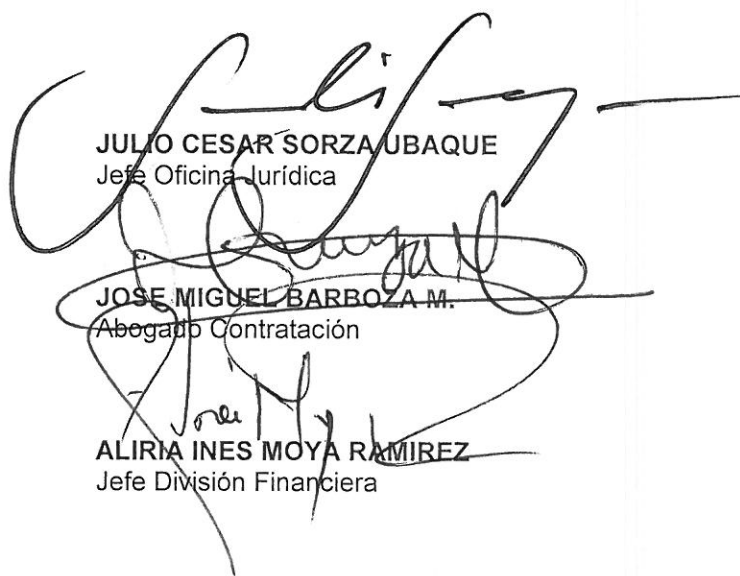 JULIO CESAR SORZA UBAQUE
Jefe Oficina Jurídica
JOSE MIGUEL BARBOZA M.
Abogado Contratación
ALIRIA INES MOYA RAMIREZ
Jefe División Financiera